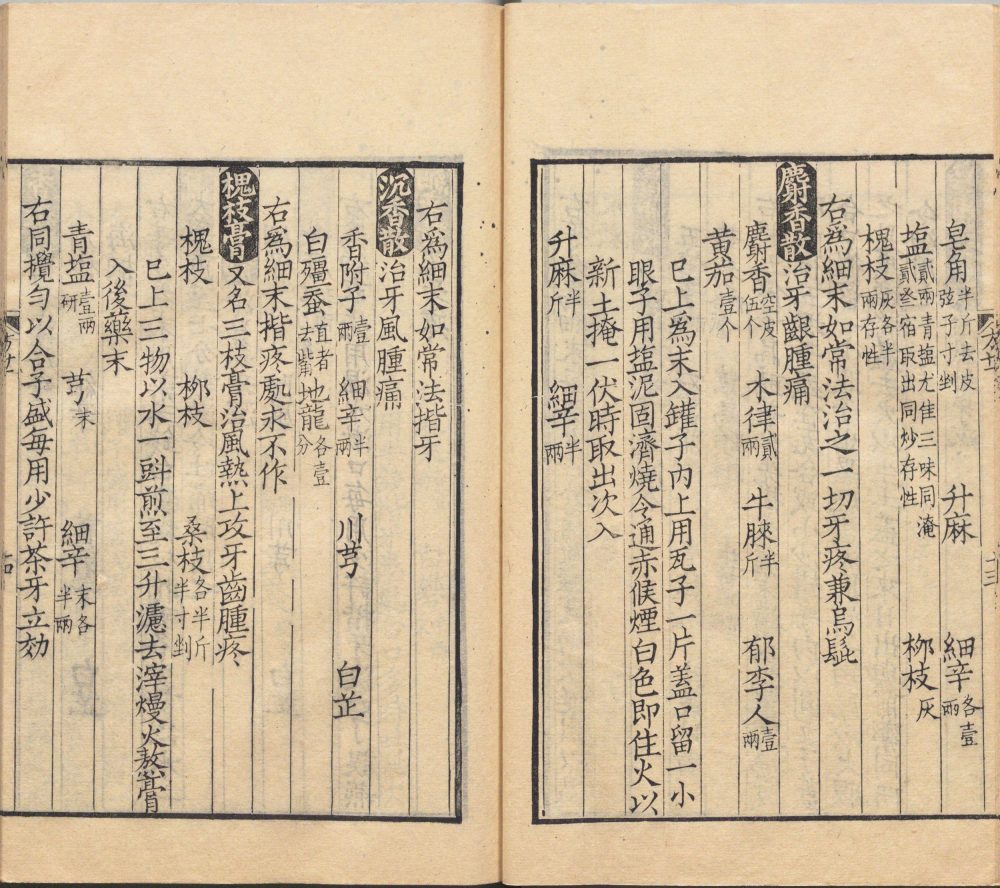 皂角半斤去皮弦子寸剉 升麻 細辛各壹兩
塩貳兩青塩尤佳三味同淹貳叁宿取出同炒存性 柳枝灰
槐枝灰各半兩存性
右為細末如常法治之一切牙疼兼烏髭
麝香散治牙齦腫痛
麝香空皮伍个 木律貳兩 牛膝半斤 郁李人壹兩
黄茄壹个
已上爲末入罐子內上用瓦子一片蓋口留一小
眼子用塩泥固濟燒令通赤候煙白色即住火以
新土掩一伏時取出次入
升麻半斤 細辛半兩
右爲細末如常法揩牙
沉香散治牙風腫痛
香附子壹兩 細辛半兩 川芎 白芷
白殭蚕直者去觜 地龍各壹分
右爲細末揩疼處永不作
槐枝膏又名三枝膏治風熱上攻牙齒腫疼
槐枝 柳枝 桑枝各半斤半寸剉
已上三物以水一㪷煎至三升濾去滓熳火熬膏
入後藥末
青塩壹兩研 芎末 細辛末各半兩
右同攪匀以合子盛每用少許茶牙立効